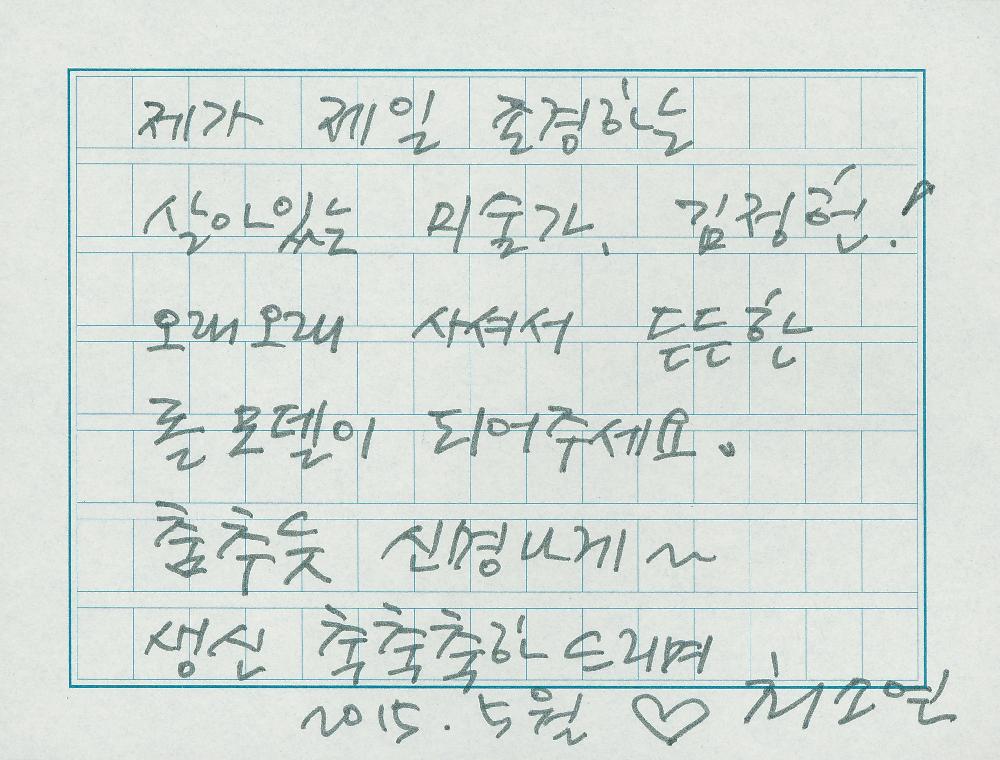 제가 제일 존경하는
살아있는 미술가, 김정헌!
오래오래 사셔서 든든한
롤 모델이 되어주세요.
춤추듯 신명나게~
생신 축축축하 드리며
2015. 5월 ♡ 최소연